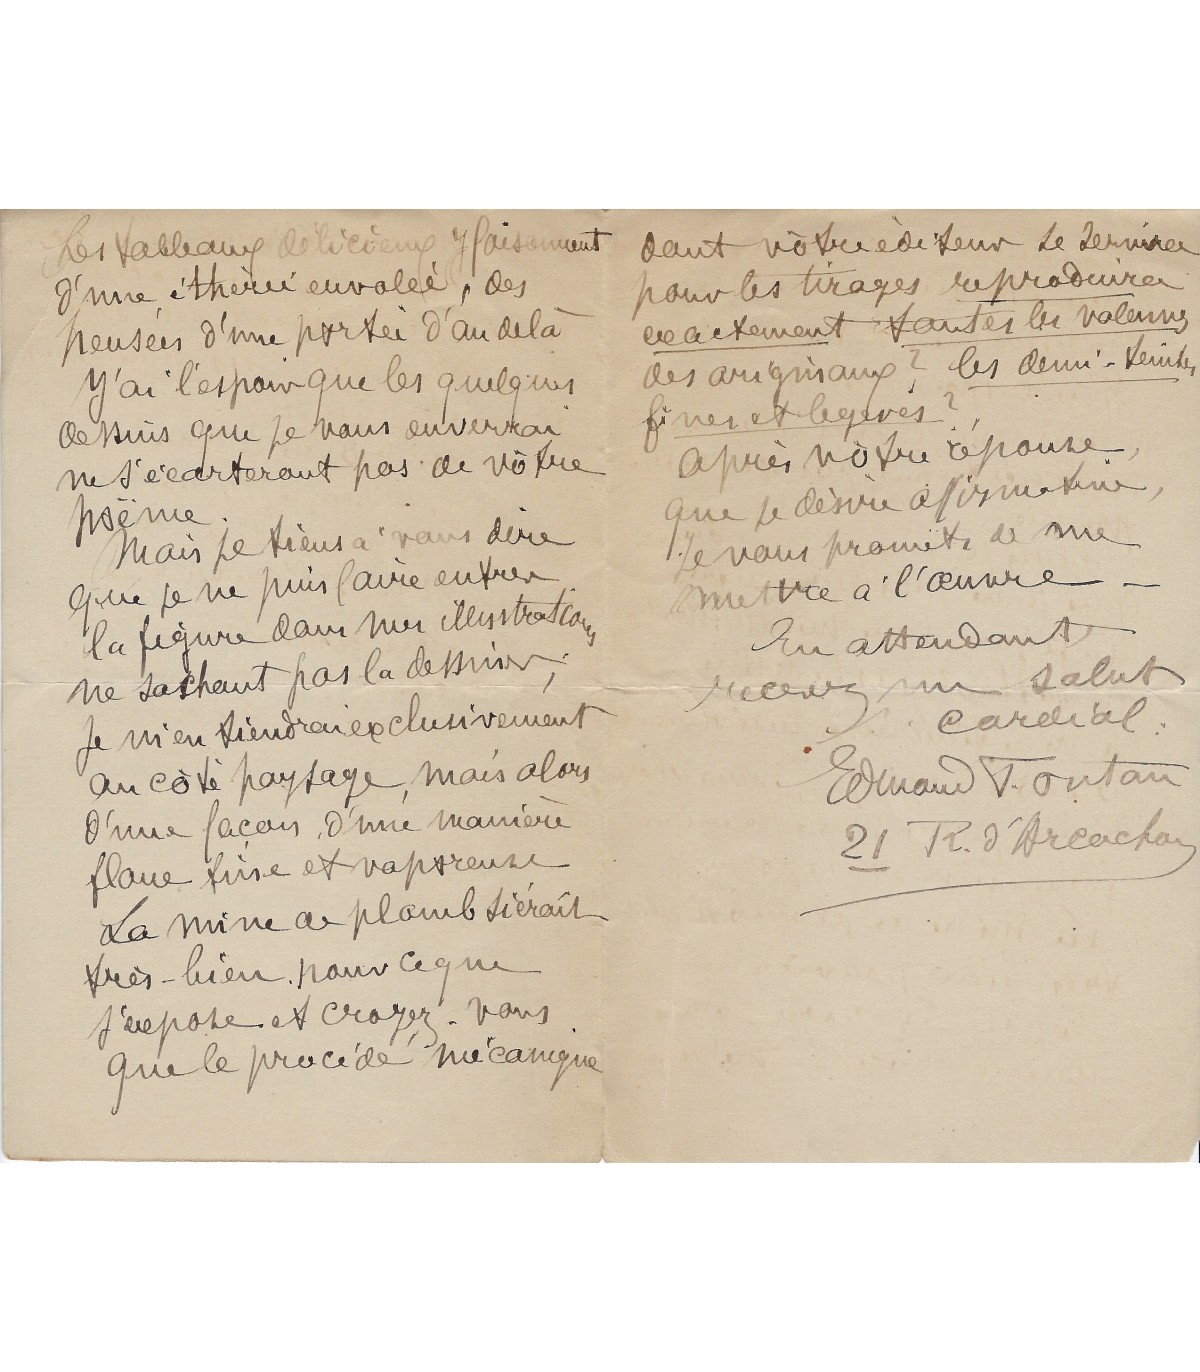 Les tableaux délicieux y foisonnent
d'une éthérée envolée, des
pensées d'une portée d'au delà
J'ai l'espoir que les quelques
dessins que je vous enverrai
ne s'écarteront pas de vôtre
poëme.
Mais je tiens à vous dire
que je ne puis faire entrer
la figure dans mes illustrations
ne sachant pas la dessiner;
Je m'en tiendrai exclusivement
au côté paysage, mais alors
d'une façon, d'une manière
floue et vaporeuse
La mine de plomb siérait
très-bien pour ce que
j'expose et croyez-vous
que le procédé mécanique
dont vôtre éditeur se servira
pour les tirages reproduira
exactement toutes les valeurs
des originaux? les demi-teintes
fines et légères?
Après vôtre réponse,
que je désire affirmative,
Je vous promets de me
mettre à l'œuvre —
En attendant
recevez un salut
cordial.
Edmond Fontan
21 R. d'Arcachon